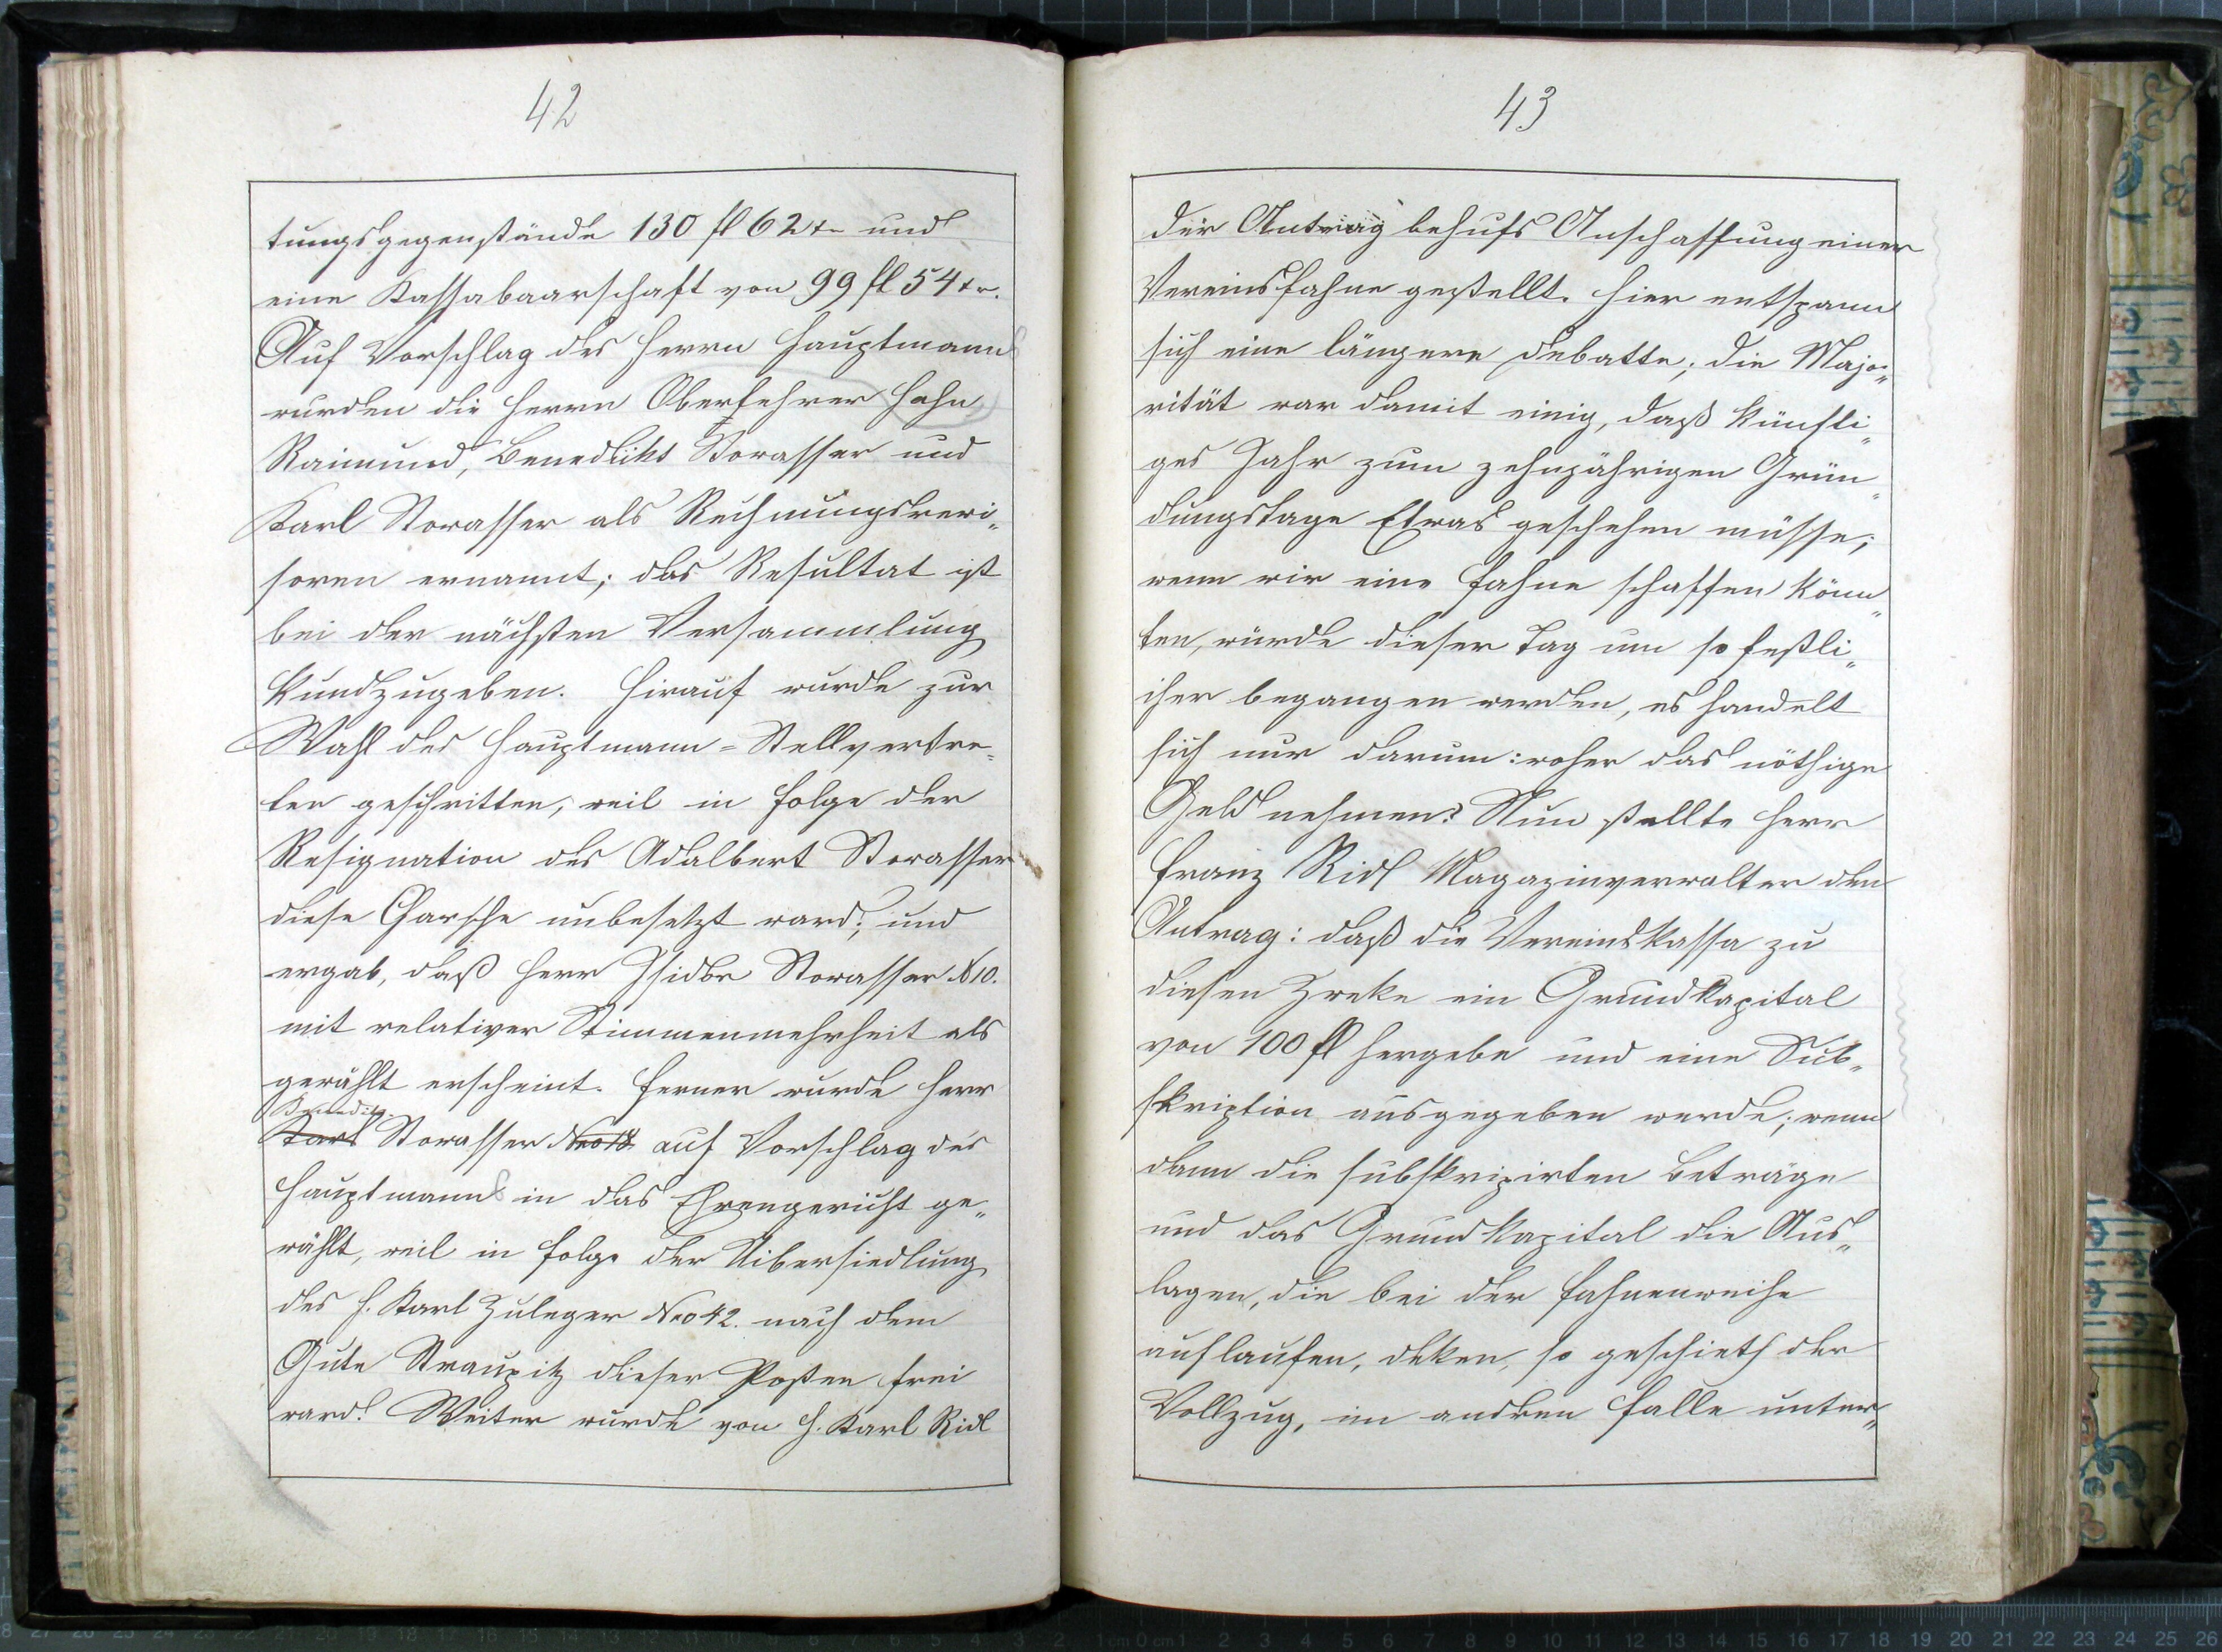 42
tungsgegenstände 130 fl 62 kr und
eine Kassabaarschaft von 99 fl 54 kr.
Auf Vorschlag des Herrn Hauptmanns
wurden die Herrn Oberlehrer Hahn
Raimund, Benedikt Storasser und
Karl Storasser als Rechnungsrevi„
soren ernannt; das Resultat ist
bei der nächsten Versammlung
kundzugeben. Hirauf wurde zur
Wahl des Hauptmann=Stellvertre„
ter geschritten, weil in Folge der
Resignation des Adalbert Storasser
diese Charsche unbesetzt ward; und
ergab, daß Herr Isidor Storasser N 10.
mit relativer Stimmenmehrheit als
gewählt erscheint. Ferner wurde Herr
Benedikt
Karl Storasser Nro 18 auf Vorschlag des
Hauptmanns in das Ehrengericht ge„
wählt, weil in Folge der Uibersiedlung
des H. Karl Zuleger Nro 42. nach dem
Gute Straupitz dieser Posten frei
ward. Weiter wurde von H. Karl Ridl
43
der Antrag behufs Anschaffung einer
Vereinsfahne gestellt. Hier entspann
sich eine längere Debatte; die Majo„
rität war damit einig, daß künfti„
ges Jahr zum zehnjährigen Grün„
dungstage Etwas geschehen müsse;
wenn wir eine Fahne schaffen könn„
ten, würde dieser Tag um so festli„
cher begangen werden, es handelt
sich nur darum: woher das nöthige
Geld nehmen? Nun stellte Herr
Franz Ridl Magazinverwalter den
Antrag: daß die Vereinskassa zu
diesen Zweke ein Grundkapital
von 100 fl hergebe und eine Sub„
skription ausgegeben werde; wenn
dann die subskripirten Beträge
und das Grundkapital die Aus„
lagen, die bei der Fahnenweihe
auflaufen, deken, so geschieth der
Vollzug, im andren Falle unter„